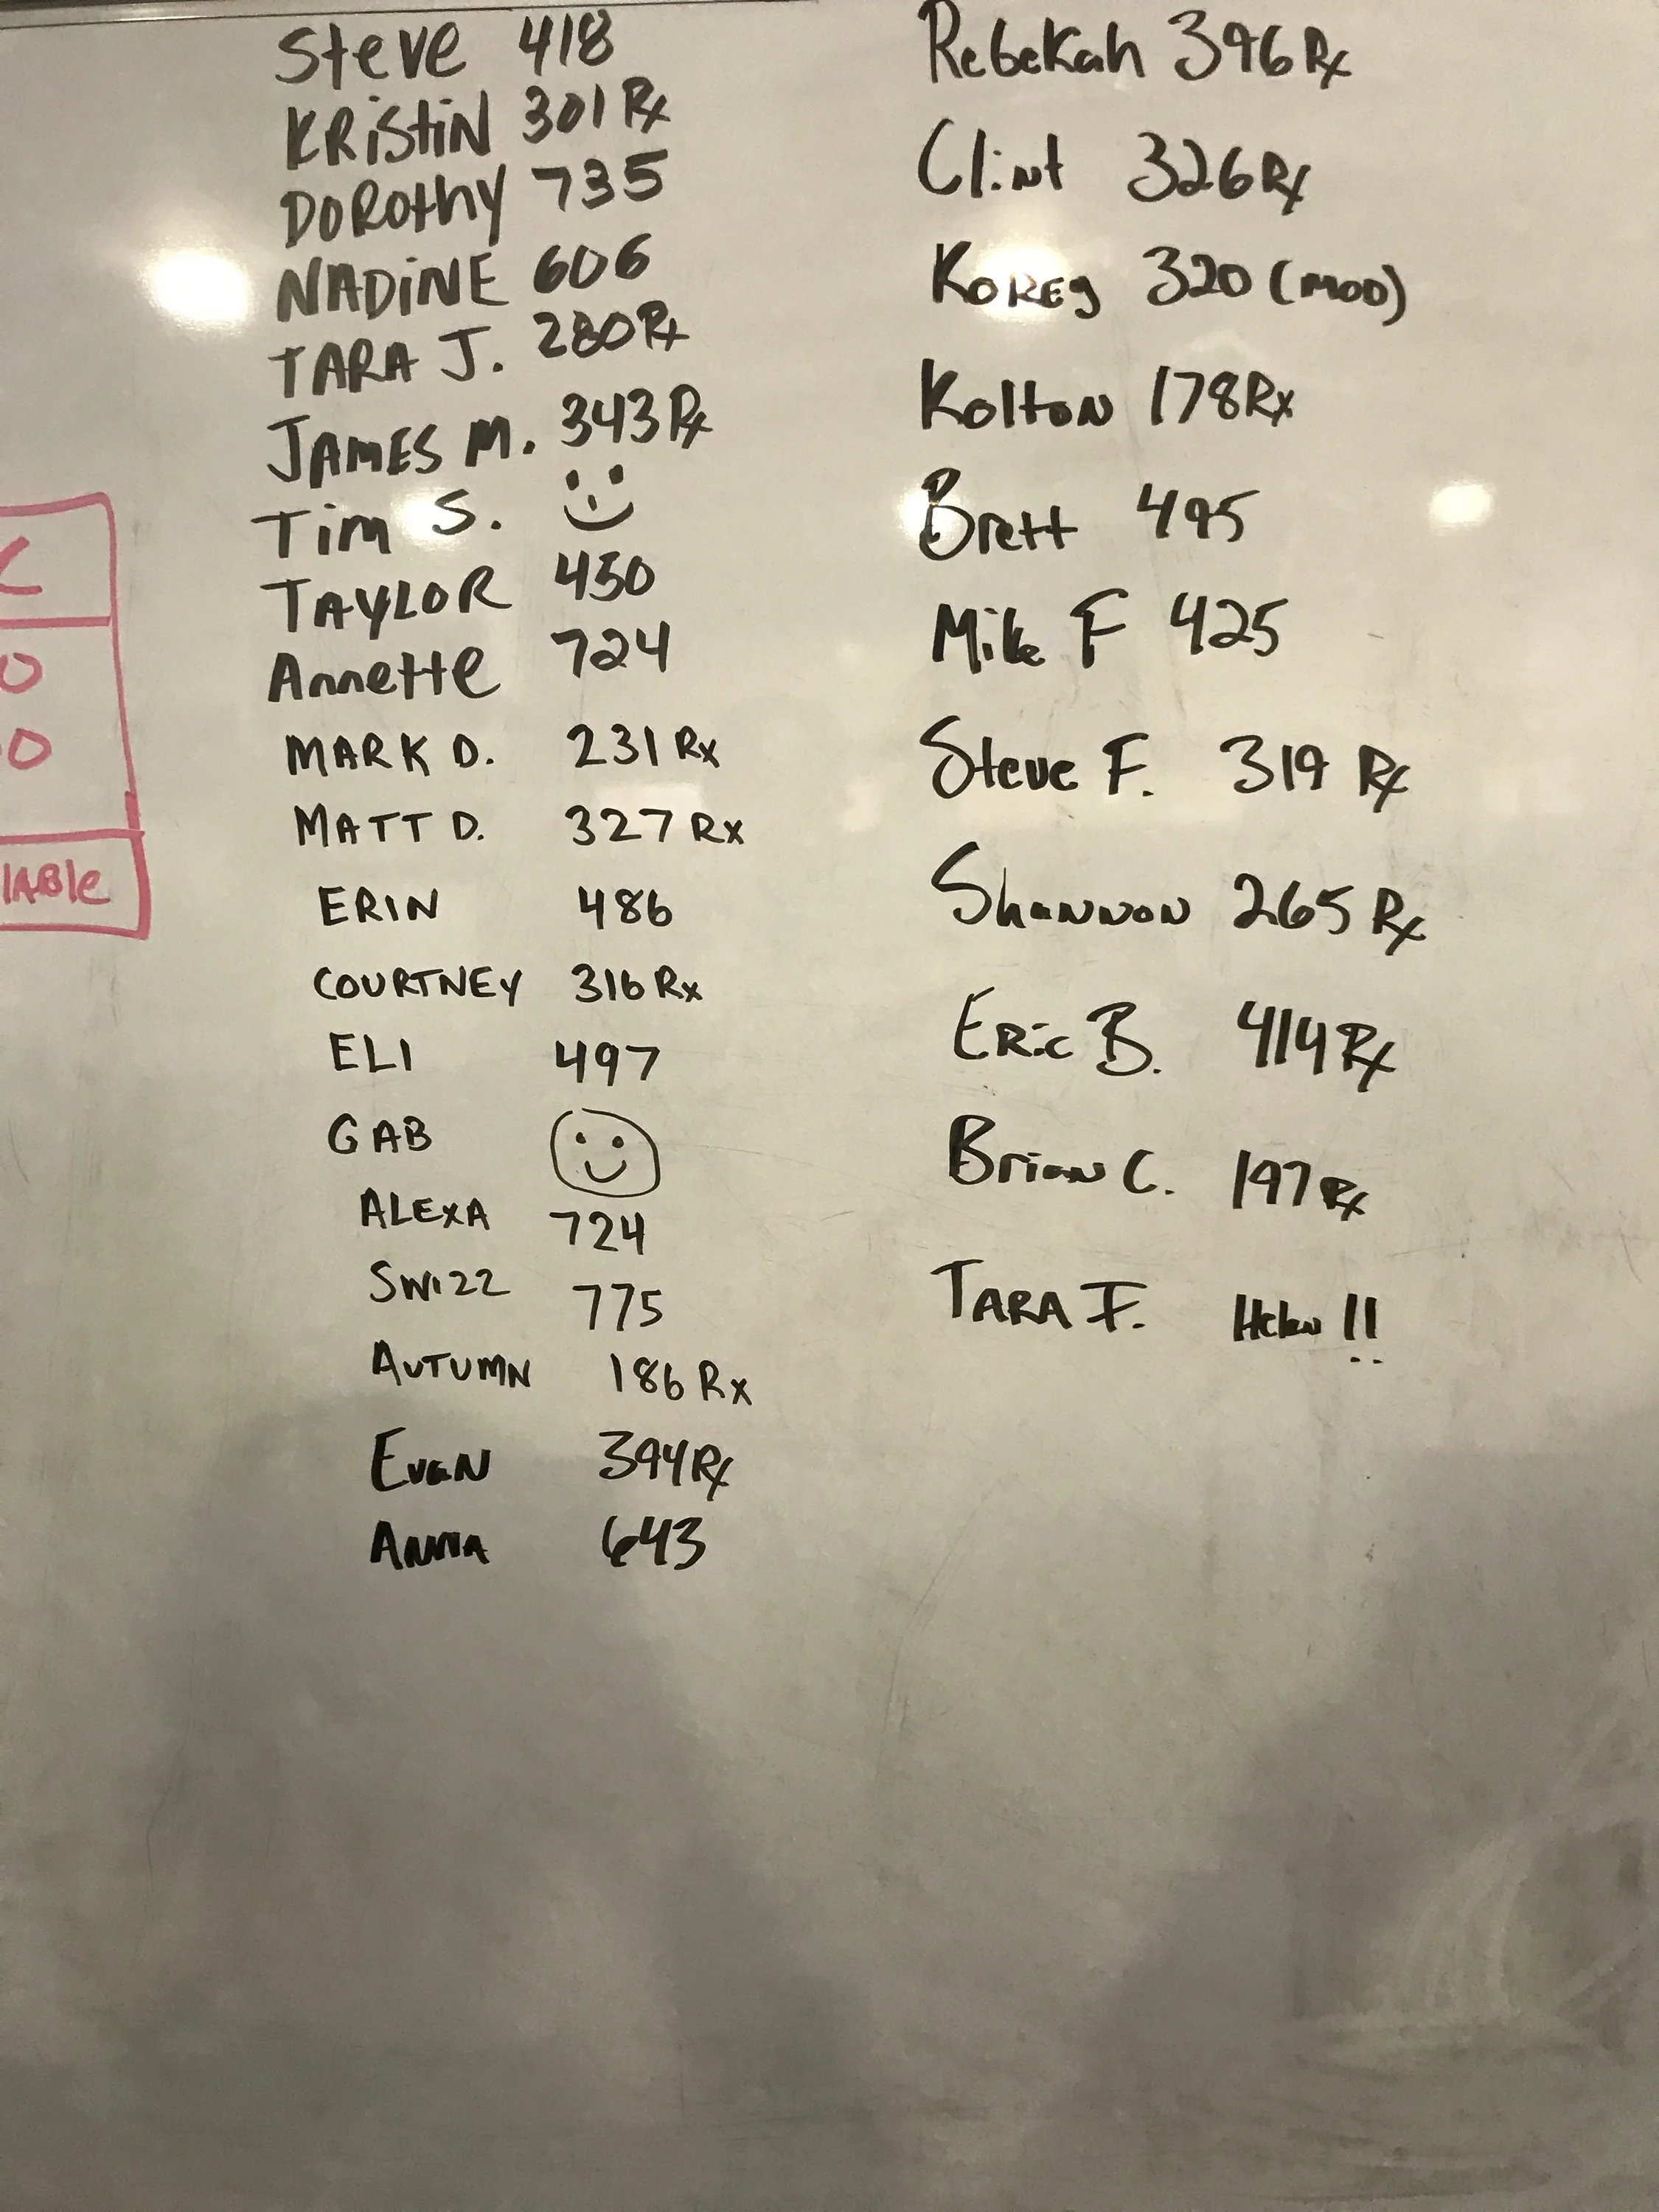 Steve 418
KRiStiN 301 Rx
DORothy 735
NADiNE 606
TARA J. 280 Rx
JAMES M. 343 Rx
Tim S.
TAYLOR 450
Annette 724
MARK D. 231 Rx
MATT D. 327 Rx
ERIN 486
COURTNEY 316 Rx
ELI 497
GAB
ALEXA 724
SWIZZ 775
AUTUMN 186 Rx
EvaN 394 Rx
ANNA 643
RebeKah 396 Rx
Clint 326 Rx
KOREy 320 (MOD)
KoltoN 178 Rx
Brett 495
Mike F 425
Steve F. 319 Rx
ShaNNoN 265 Rx
ERic B. 414 Rx
BriaN C. 197 Rx
TARA F. !!
C
0
0
IABle